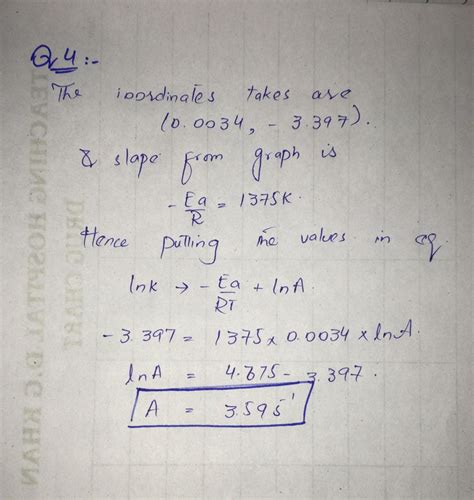 Q4:-
The coordinates takes are
(0.0034, -3.397).
& slope from graph is
-Ea/R = 1375K.
Hence putting the values in eq.
lnk → -Ea/RT + lnA.
-3.397 = 1375 x 0.0034 x lnA.
lnA = 4.675 - 3.397.
A = 3.59 s⁻¹
TEACHING HOSPITAL D G KHAN
DRUG CHART